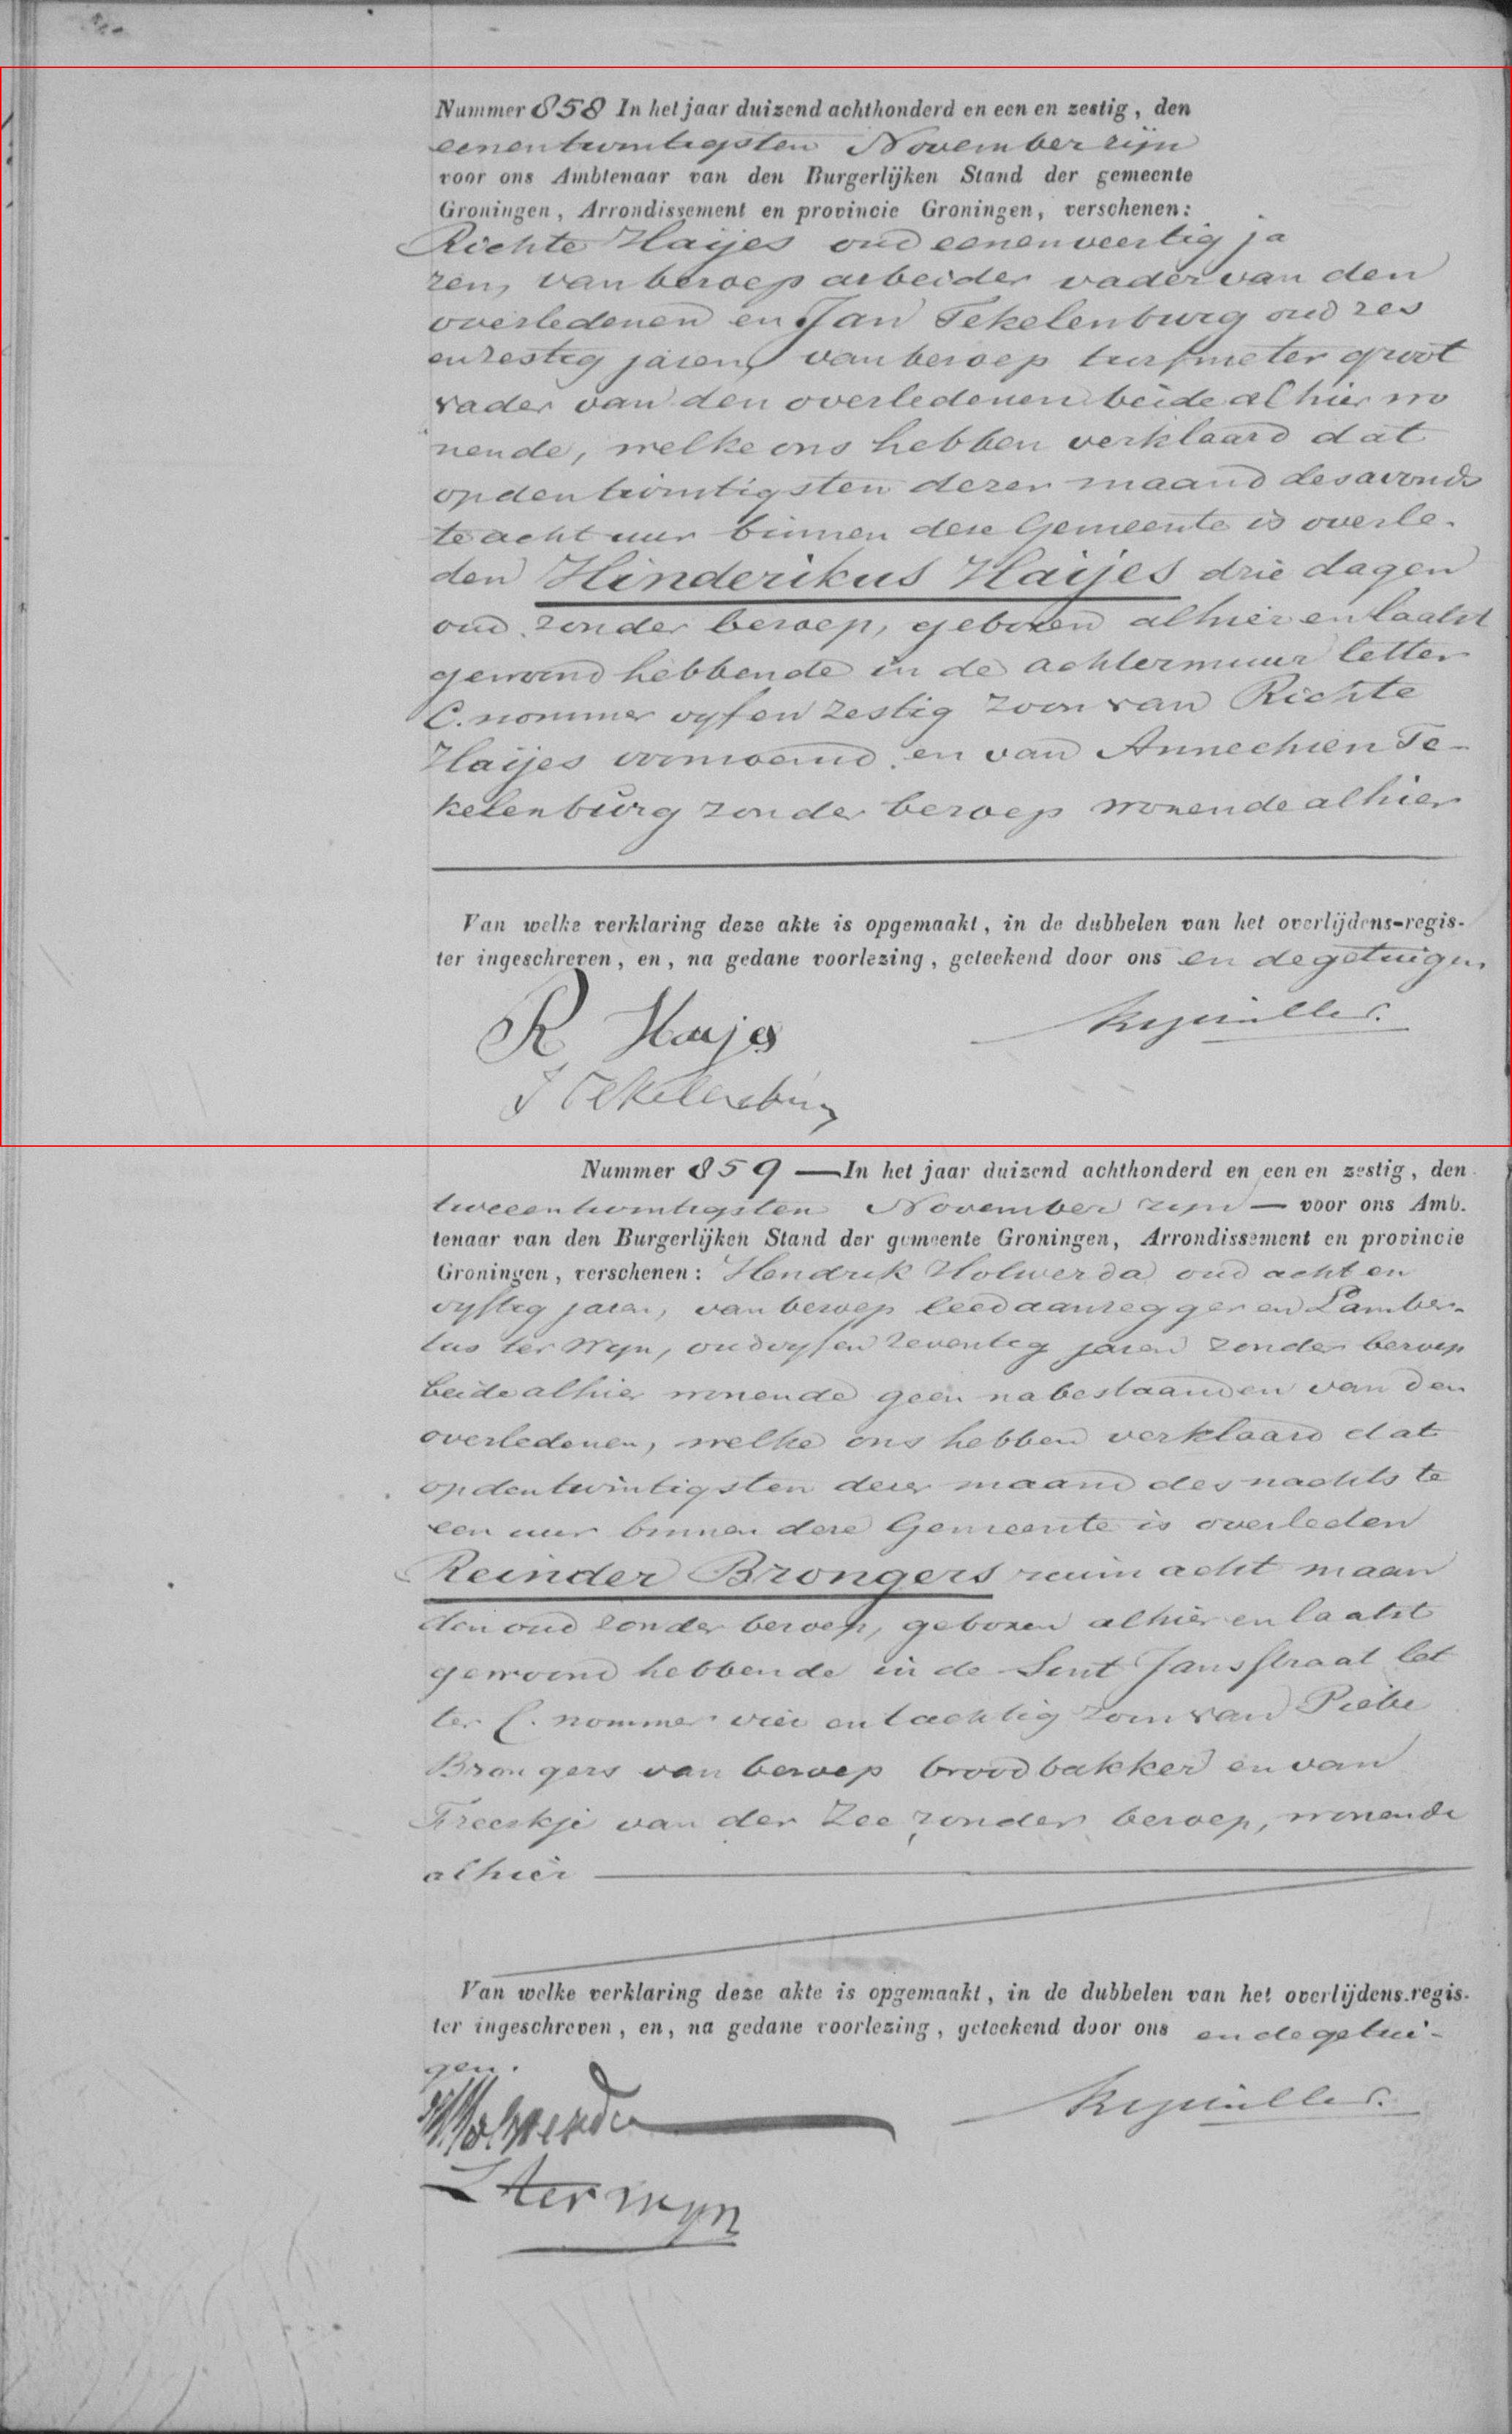 Nummer 858 In het jaar duizend achthonderd en een en zestig, den
eenentwintigsten November zijn
voor ons Ambtenaar van den Burgerlijken Stand der gemeente
Groningen, Arrondissement en provincie Groningen, verschenen:
Richte Haijes oud eenenveertig ja
ren, van beroep arbeider vader van den
overledenen en Jan Tekelenburg oud zes
en zestig jaren, van beroep turfmeter groot
vader van den overledenen beide alhier wo
nende, welke ons hebben verklaard dat
op den twintigsten dezer maand des avonds
te acht uur binnen deze Gemeente is overle-
den Hinderikus Haijes drie dagen
oud zonder beroep, geboren alhier en laatst
gewoond hebbende in de achtermuur letter
C. nommer vyf en zestig zoon van Richte
Haijes voornoemd en van Annechien Te-
kelenburg zonder beroep wonende alhier
Van welke verklaring deze akte is opgemaakt, in de dubbelen van het overlijdens-regis-
ter ingeschreven, en, na gedane voorlezing, geteekend door ons en de getuigen
R Hajes
J Tekelenburg
Nummer 859 — In het jaar duizend achthonderd en een en zestig, den
tweeentwintigsten November zijn — voor ons Amb.
tenaar van den Burgerlijken Stand der gemeente Groningen, Arrondissement en provincie
Groningen, verschenen: Hendrik Holwerda oud acht en
vyftig jaren, van beroep leedaanzegger en Lamber-
tus ter Wyn, oud vyf en zeventig jaren zonder beroep
beide alhier wonende geen nabestaanden van den
overledenen, welke ons hebben verklaard dat
op den twintigsten dezer maand des nachts te
een uur binnen deze Gemeente is overleden
Reinder Brongers ruim acht maan
den oud zonder beroep, geboren alhier en laatst
gewoond hebbende in de Sint Jansstraat let
ter C. nommer vier en tachtig zoon van Piebe
Brongers van beroep broodbakker en van
Freerkje van der Zee zonder beroep, wonende
alhier
Van welke verklaring deze akte is opgemaakt, in de dubbelen van het overlijdens.regis-
ter ingeschreven, en, na gedane voorlezing, geteekend door ons en de getui-
gen.
H Holwerda
L ter Wyn